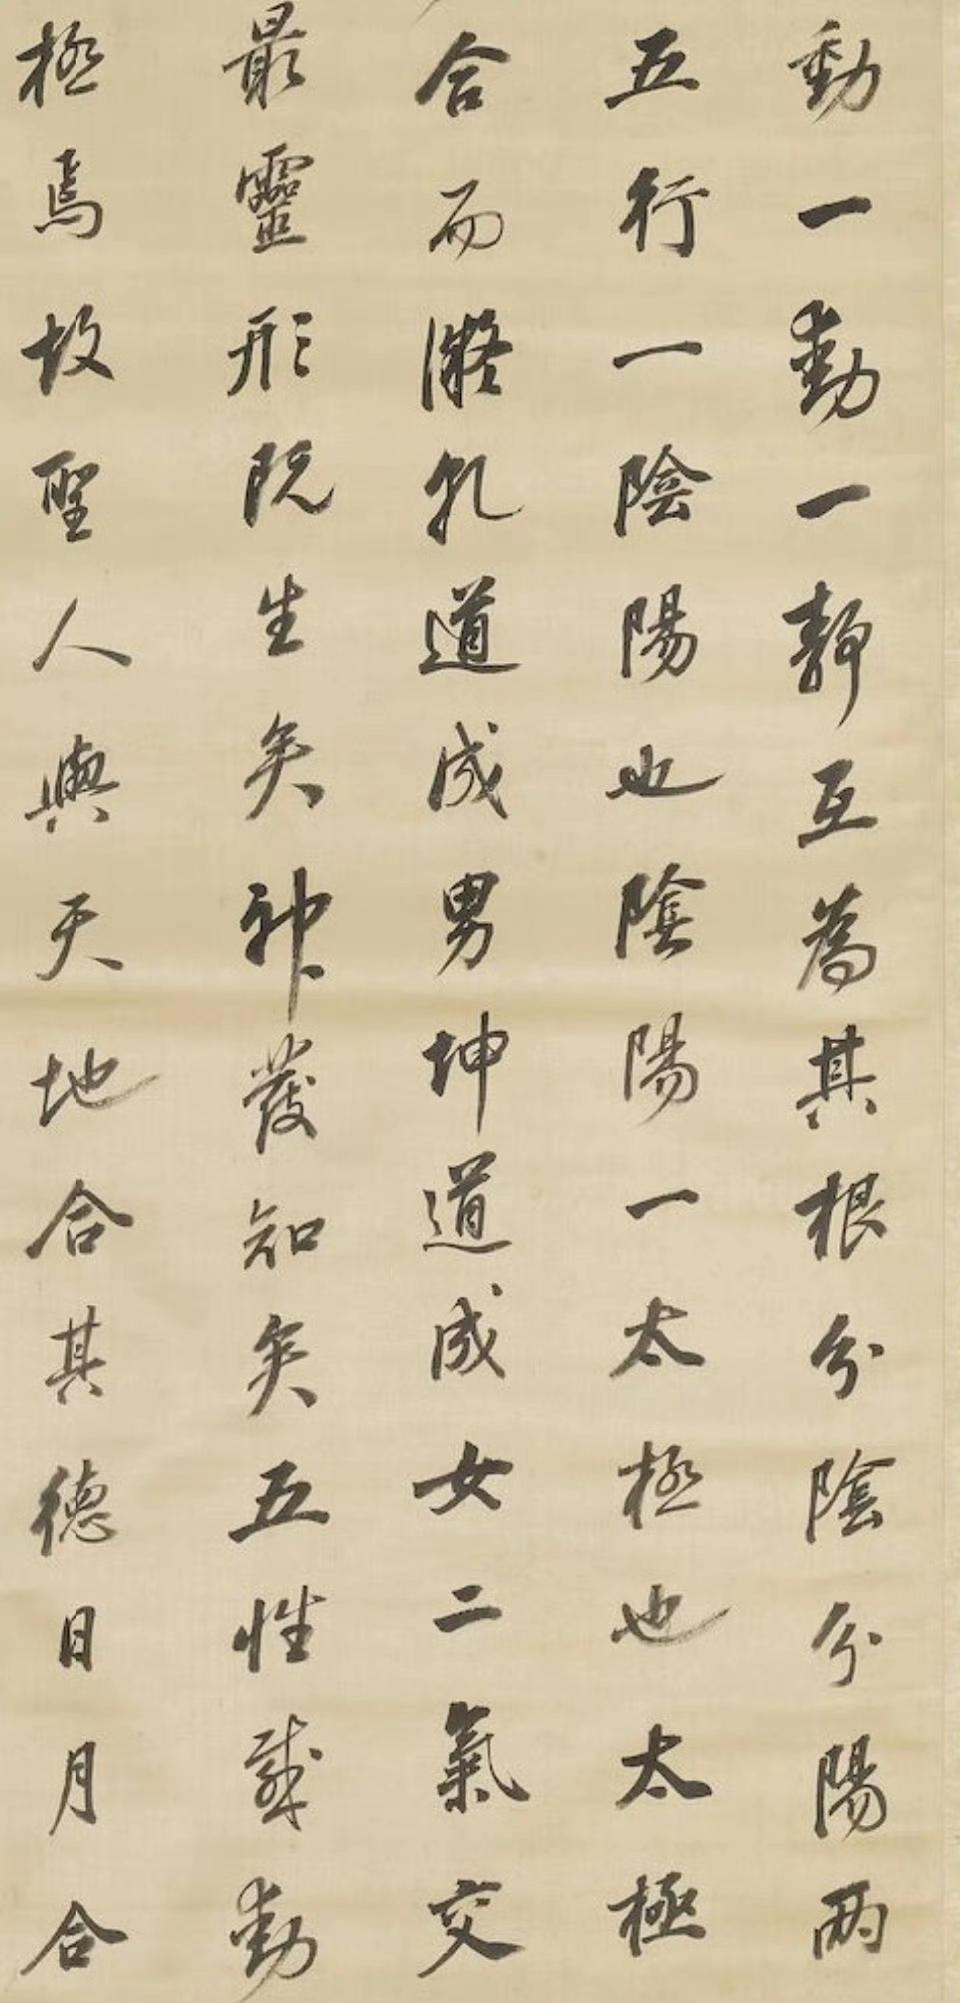 動一動一靜互為其根分陰分陽兩
五行一陰陽也陰陽一太極也太極
合而凝乹道成男坤道成女二氣交
最靈形既生矣神發知矣五性感動
極焉故聖人與天地合其德日月合